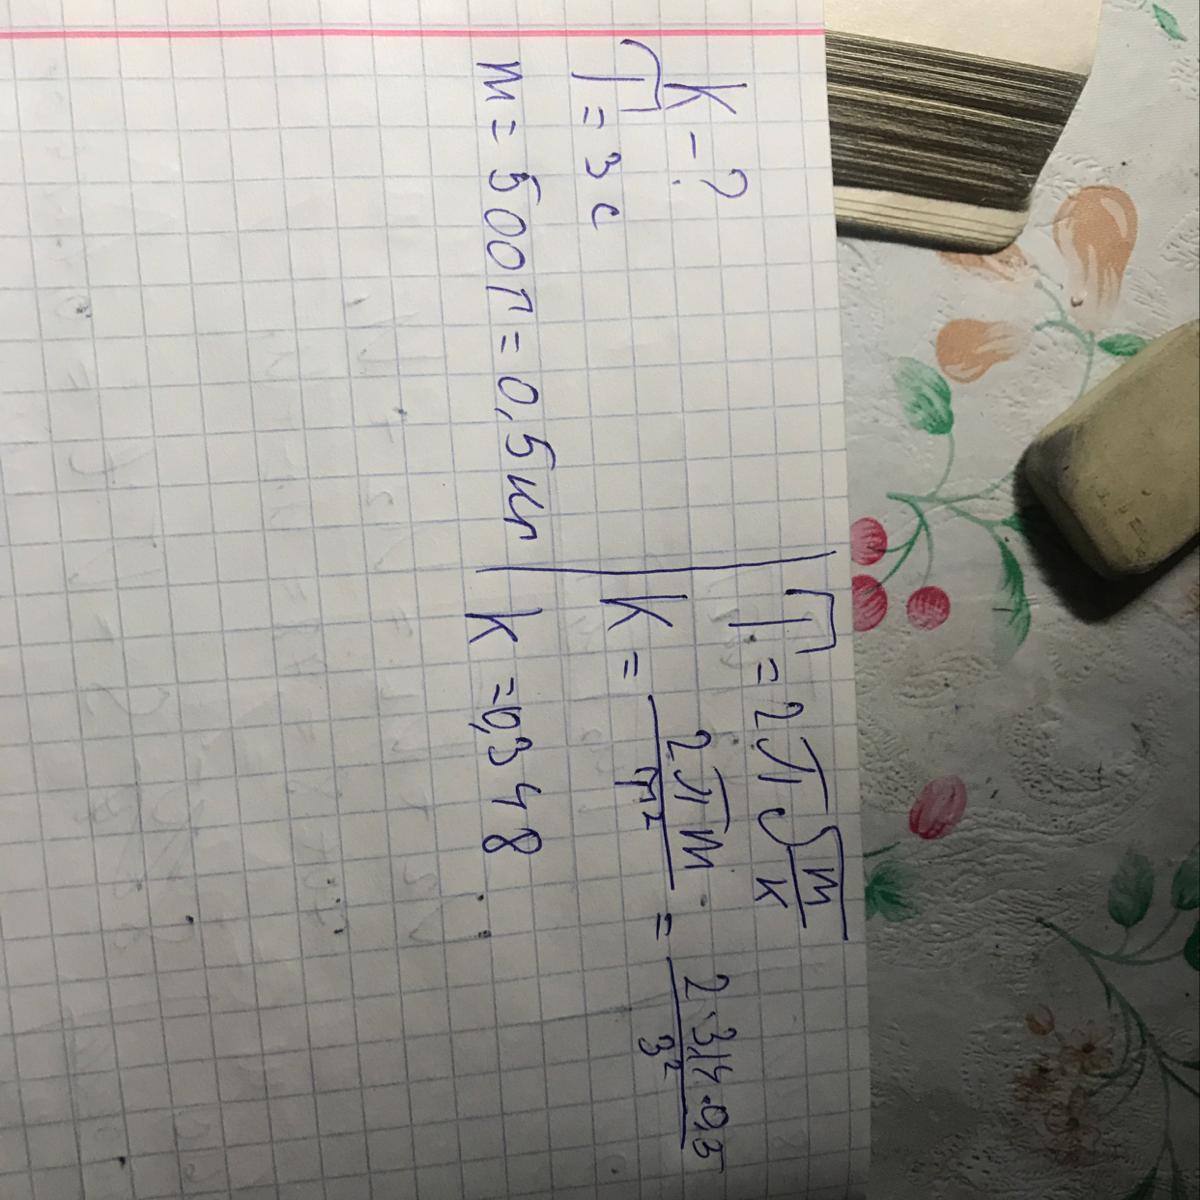 K - ?
T = 3 с
m = 500г = 0,5кг
T = 2π√m/к
K = 2πm/T² = 2·3,14·0,5/3²
K = 0,348